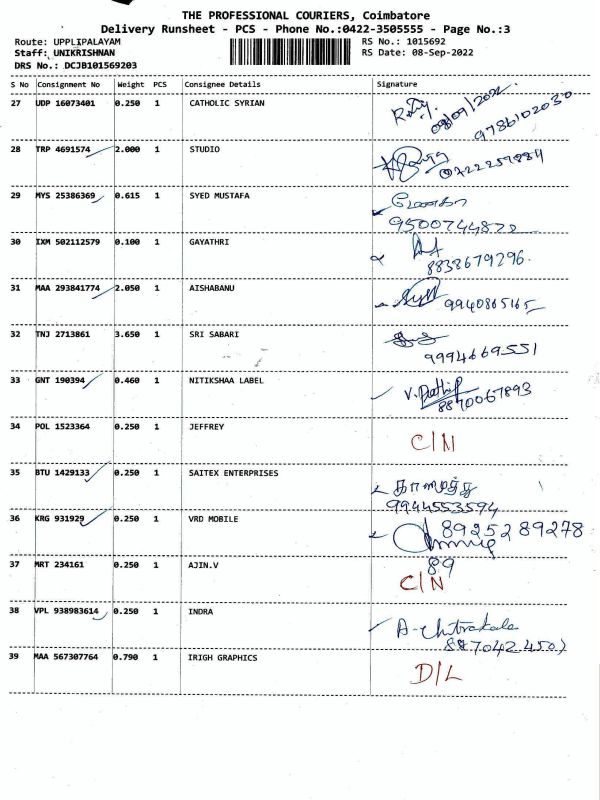 THE PROFESSIONAL COURIERS, Coimbatore
Delivery Runsheet - PCS - Phone No.:0422-3505555 - Page No.:3
Route: UPPLIPALAYAM RS No.: 1015692
Staff: UNIKRISHNAN RS Date: 08-Sep-2022
DRS No.: DCJB101569203
S No Consignment No Weight PCS Consignee Details Signature
27 UDP 16073401 0.250 1 CATHOLIC SYRIAN
08/09/2022
9786102030
28 TRP 4691574 2.000 1 STUDIO
29 MYS 25386369 0.615 1 SYED MUSTAFA
9500744822
30 IXM 502112579 0.100 1 GAYATHRI
8838679296
31 MAA 293841774 2.050 1 AISHABANU
9940865165
32 TNJ 2713861 3.650 1 SRI SABARI
9994669551
33 GNT 190394 0.460 1 NITIKSHAA LABEL
8870067893
34 POL 1523364 0.250 1 JEFFREY C/N
35 BTU 1429133 0.250 1 SAITEX ENTERPRISES
9944553594
36 KRG 931929 0.250 1 VRD MOBILE 8925289278
89
37 MRT 234161 0.250 1 AJIN.V C/N
38 VPL 938983614 0.250 1 INDRA A-chitrakala
39 MAA 567307764 0.790 1 IRIGH GRAPHICS D/L